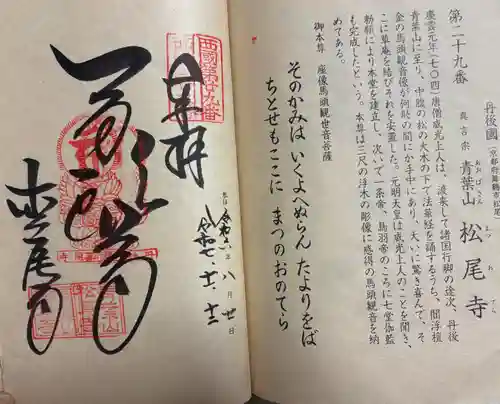 第二十九番
丹後国(京都府舞鶴市松尾
真言宗 青葉山 松尾寺
あおばさん まつのおでら
慶雲元年(七〇四)唐僧威光上人は、渡来して諸国行脚の途次、丹後
青葉山に至り、中腹の松の大木の下で法華経を誦するうち、閻浮檀
金の馬頭観音像が何時の間にか手中にあり、大いに驚き喜んで、そ
こに草庵を結びそれを安置した。元明天皇は威光上人のことを聞き、
勅願により本堂を建立し、次いで一条帝、鳥羽帝のころに七堂伽藍
も完成したという。本尊は三尺の浮木の彫像に感得の馬頭観音を納
めてある。
御本尊 座像馬頭観世音菩薩
そのかみは いくよへぬらん たよりをば
ちとせもここに まつのおのてら
西國第廿九番
奉拝
令和 年 八月 廿日
令和七・十一・十三
松尾寺